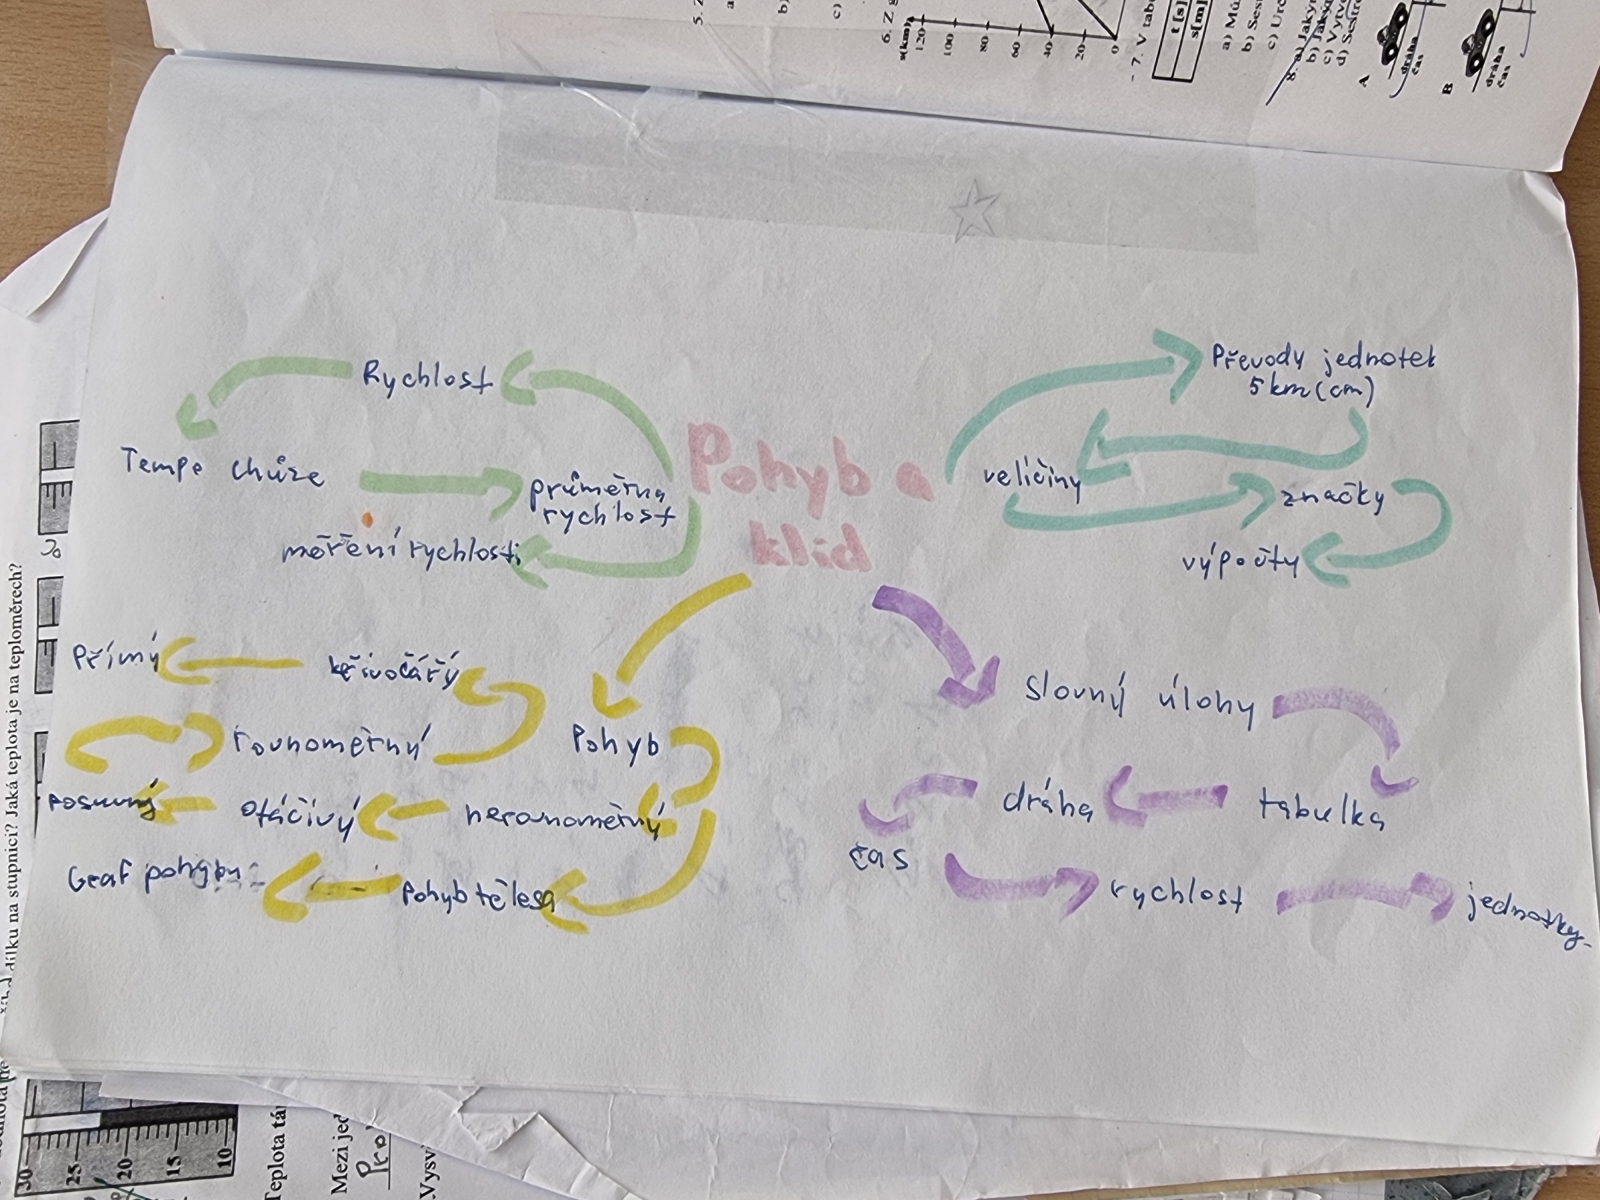 5. Z
a
b)
c)
6. Z g
s[km]
120
100
80
60
40
20
0
7. V tabu
t [s]
s[m]
a) Mů
b) Sest
c) Urč
8. a) Jakým
b) Jak
c) Vytvo
d) Sestro
A
dráha
čas
B
dráha
čas
Pohyb a
klid
Rychlost
Tempe chůze
průměrna
rychlost
měření rychlosti
Převody jednotek
5 km (cm)
veličiny
značky
výpočty
Pohyb
nerovnoměrný
otáčivý
posuvný
rovnoměrný
křivočářý
Přímý
Pohyb tělesa
Graf pohybu
Slovný úlohy
tabulka
dráha
čas
rychlost
jednotky
dílku na stupnici? Jaká teplota je na teploměrech?
30
25
20
15
10
Teplota tá
Mezi jed
Pro
Vysv